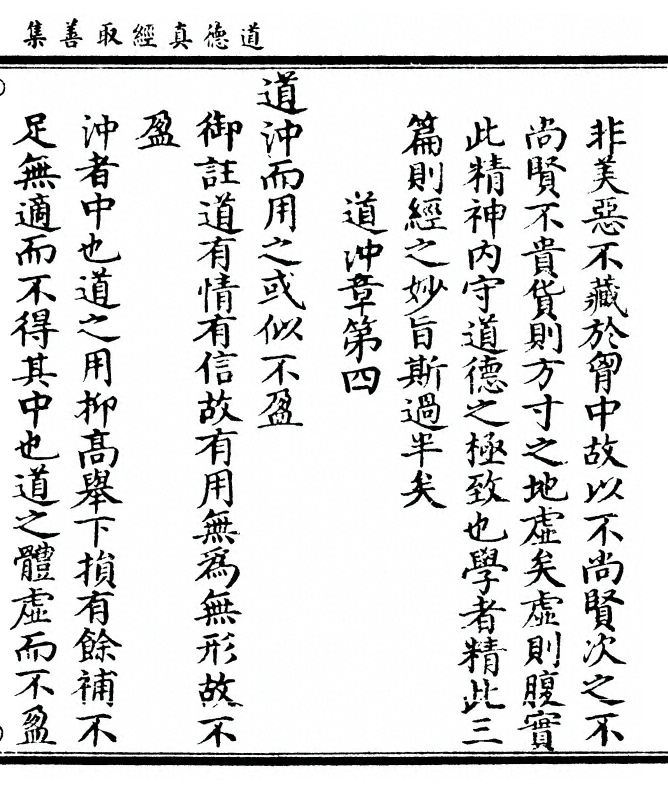 道德真經取善集
非美惡不藏於胷中故以不尚賢次之不
尚賢不貴貨則方寸之地虛矣虛則腹實
此精神内守道德之極致也學者精此三
篇則經之妙旨斯過半矣
道沖章第四
道沖而用之或似不盈
御註道有情有信故有用無為無形故不
盈
沖者中也道之用抑高舉下損有餘補不
足無適而不得其中也道之體虛而不盈